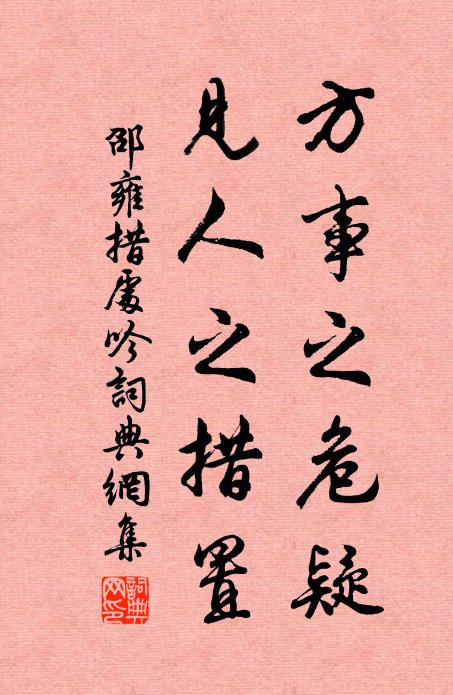 方事之危疑
見人之措置
邵雍措處吟詞典網集
詞典網印